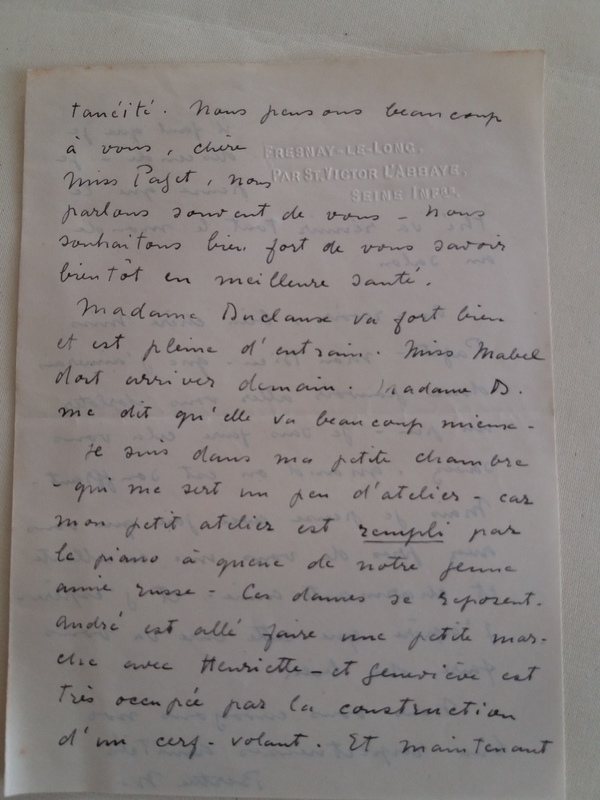 tanéité. Nous pensons beaucoup
à vous, chère
FRESNAY-LE-LONG,
PAR ST VICTOR L'ABBAYE,
SEINE INFRE.
Miss Paget, nous
parlons souvent de vous - Nous
souhaitons bien fort de vous savoir
bientôt en meilleure santé.
Madame Duclaux va fort bien
et est pleine d'entrain. Miss Mabel
doit arriver demain. Madame D.
me dit qu'elle va beaucoup mieux -
Je suis dans ma petite chambre
- qui me sert un peu d'atelier - car
mon petit atelier est rempli par
le piano à queue de notre jeune
amie russe - Ces dames se reposent.
André est allé faire une petite mar-
che avec Henriette - et Geneviève est
très occupée par la construction
d'un cerf-volant. Et maintenant